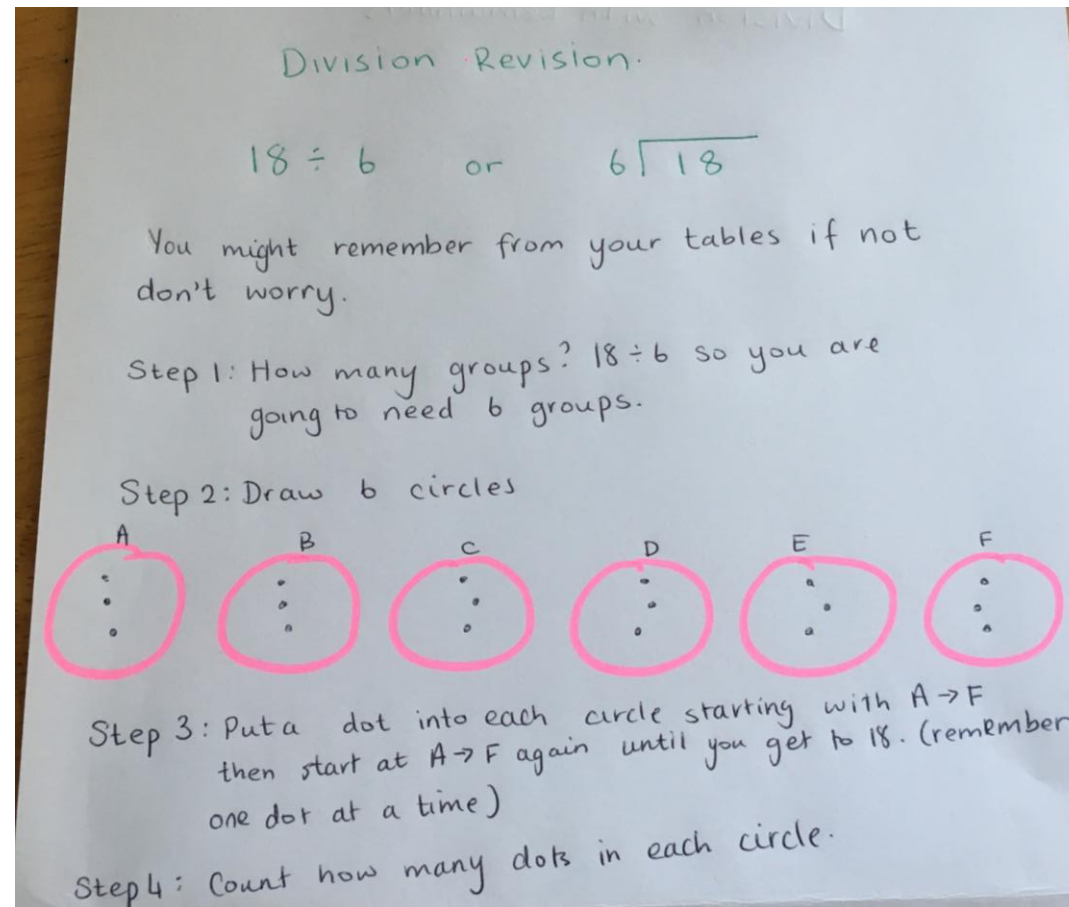 Division Revision.
18 ÷ 6 or 6 18
You might remember from your tables if not
don't worry.
Step 1: How many groups? 18 ÷ 6 so you are
going to need 6 groups.
Step 2: Draw 6 circles
A B C D E F
Step 3: Put a dot into each circle starting with A → F
then start at A → F again until you get to 18. (remember
one dot at a time)
Step 4: Count how many dots in each circle.